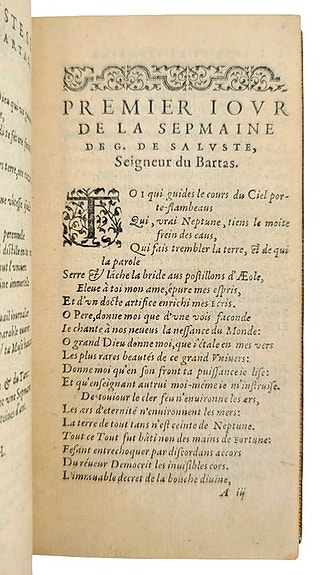 PREMIER IOVR
DE LA SEPMAINE
DE G. DE SALVSTE,
Seigneur du Bartas.
TOI qui guides le cours du Ciel por-
te-flambeaus
Qui, vrai Neptune, tiens le moite
frein des eaus,
Qui fais trembler la terre, & de qui
la parole
Serre & lâche la bride aus postillons d'Æole,
Eleue à toi mon ame, épure mes espris,
Et d'vn docte artifice enrichi mes Ecris.
O Pere, donne moi que d'vne vois faconde
Ie chante à nos neueus la nessance du Monde:
O grand Dieu donne moi, que i'étale en mes vers
Les plus rares beautés de ce grand Vniuers:
Donne moi qu'en son front ta puissance ie lise:
Et qu'enseignant autrui moi-même ie m'instruise.
De toujour le cler feu n'environne les ærs,
Les ærs d'eternité n'environnent les mers:
La terre de tout tans n'est ceinte de Neptune.
Tout ce Tout fut bâti non des mains de Fortune:
Fesant entrechoquer par discordans accors
Du réueur Democrit les inuisibles cors.
L'immuable decret de la bouche diuine,
A iij